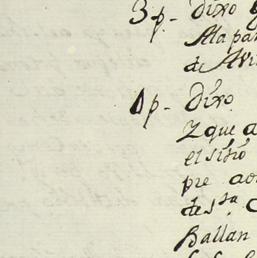 3p.- dixo
Ala par
de Avi
1p- dixo.
Y que a
el sitio
pre ao
de sta. C
Ballan